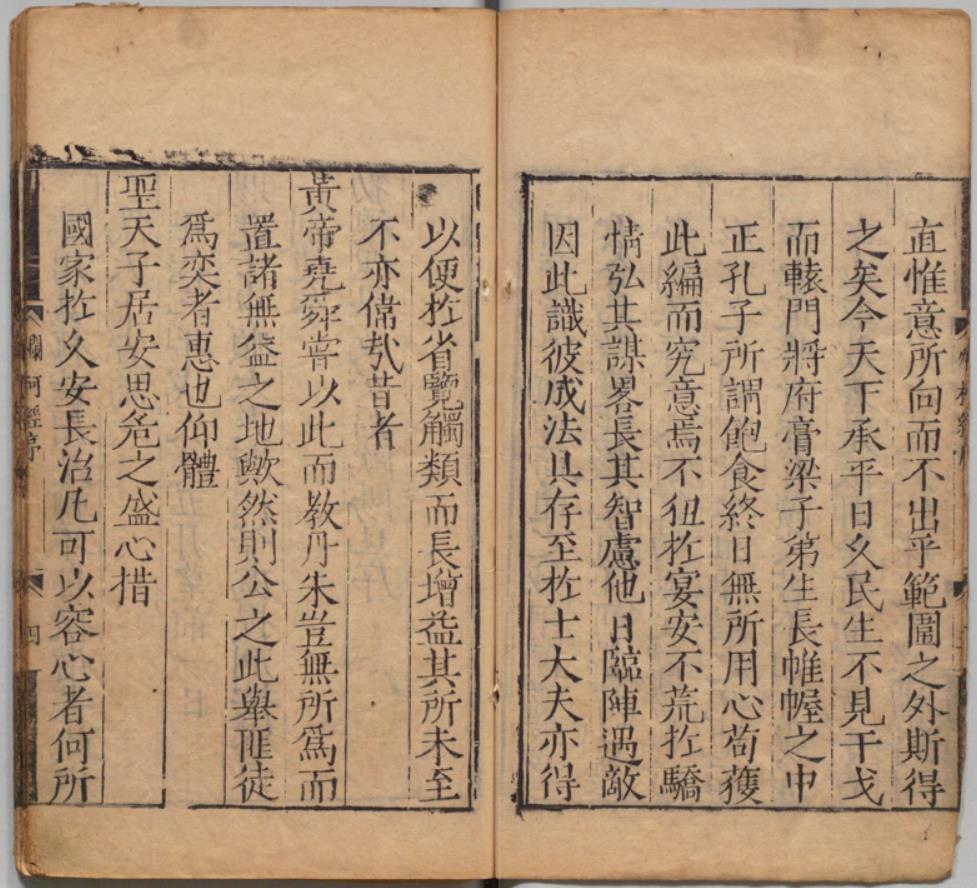 直惟意所向而不出乎範圍之外斯得
之矣今天下承平日久民生不見干戈
而轅門將府膏梁子弟生長帷幄之中
正孔子所謂飽食終日無所用心茍獲
此編而究意焉不狃扵宴安不荒扵驕
情弘其謀畧長其智慮他日臨陣遇敵
因此識彼成法具存至扵士大夫亦得
以便扵省覽觸類而長增益其所未至
不亦偹㢤昔者
黃帝堯舜嘗以此而教丹朱豈無所爲而
置諸無益之地歟然則公之此舉匪徒
爲奕者惠也仰體
聖天子居安思危之盛心措
國家扵久安長治凡可以容心者何所
爛柯經序
四